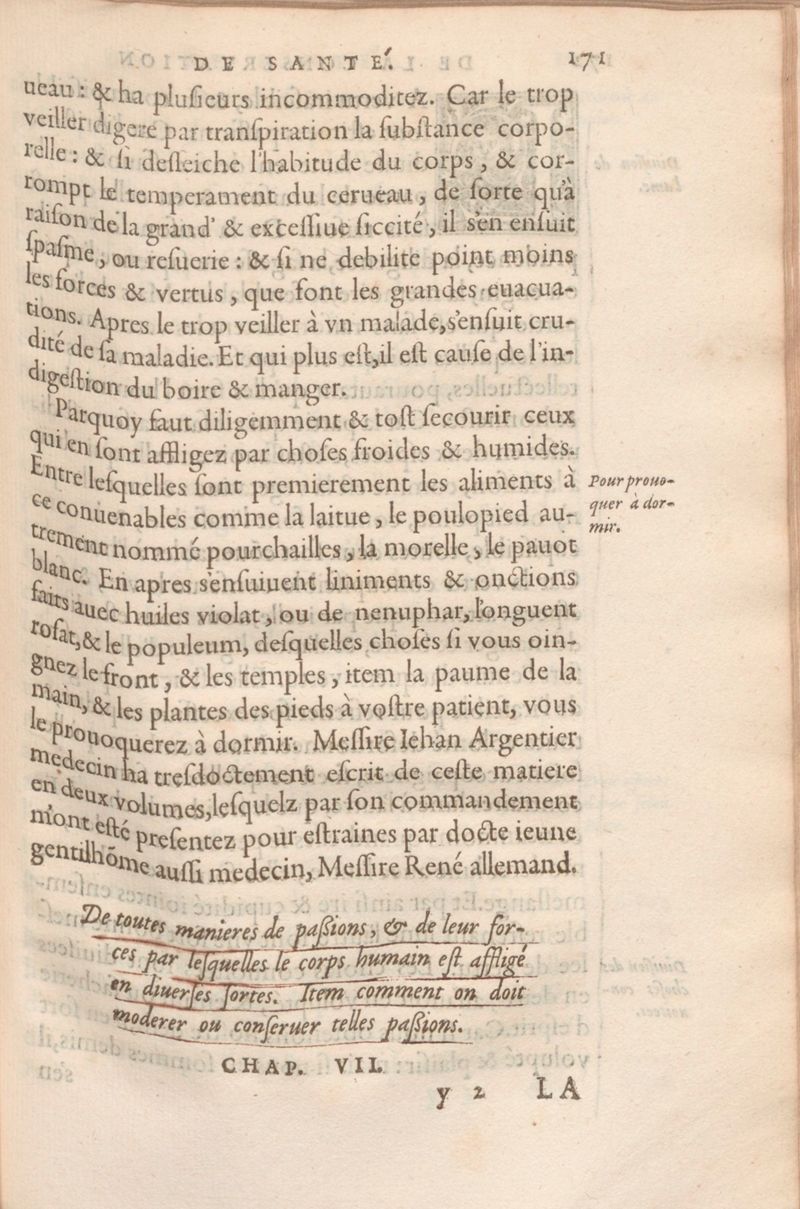 DE SANTE. 171
ueau : & ha plusieurs incommoditez. Car le trop
veiller digere par transpiration la substance corpo-
relle : & si desseiche l'habitude du corps, & cor-
rompt le temperament du cerueau, de sorte qu'à
raison de la grand' & excessiue siccité, il s'en ensuit
spasme, ou resuerie : & si ne debilite point moins
les forces & vertus, que font les grandes euacua-
tions. Apres le trop veiller à vn malade, s'ensuit cru-
dité de sa maladie. Et qui plus est, il est cause de l'in-
digestion du boire & manger.
Parquoy faut diligemment & tost secourir ceux
qui en sont affligez par choses froides & humides.
Entre lesquelles sont premierement les aliments à
ce conuenables comme la laitue, le poulopied au-
trement nommé pourchailles, la morelle, le pauot
blanc. En apres s'ensuiuent liniments & onctions
faits auec huiles violat, ou de nenuphar, l'onguent
rosat, & le populeum, desquelles choses si vous oin-
gnez le front, & les temples, item la paume de la
main, & les plantes des pieds à vostre patient, vous
le prouoquerez à dormir. Messire Iehan Argentier
medecin ha tresdoctement escrit de ceste matiere
en deux volumes, lesquelz par son commandement
m'ont esté presentez pour estraines par docte ieune
gentilhôme aussi medecin, Messire René allemand.
Pour prouo-
quer à dor-
mir.
De toutes manieres de passions, & de leur for-
ces par lesquelles le corps humain est affligé
en diuerses sortes. Item comment on doit
moderer ou conseruer telles passions.
CHAP. VII.
y 2 LA